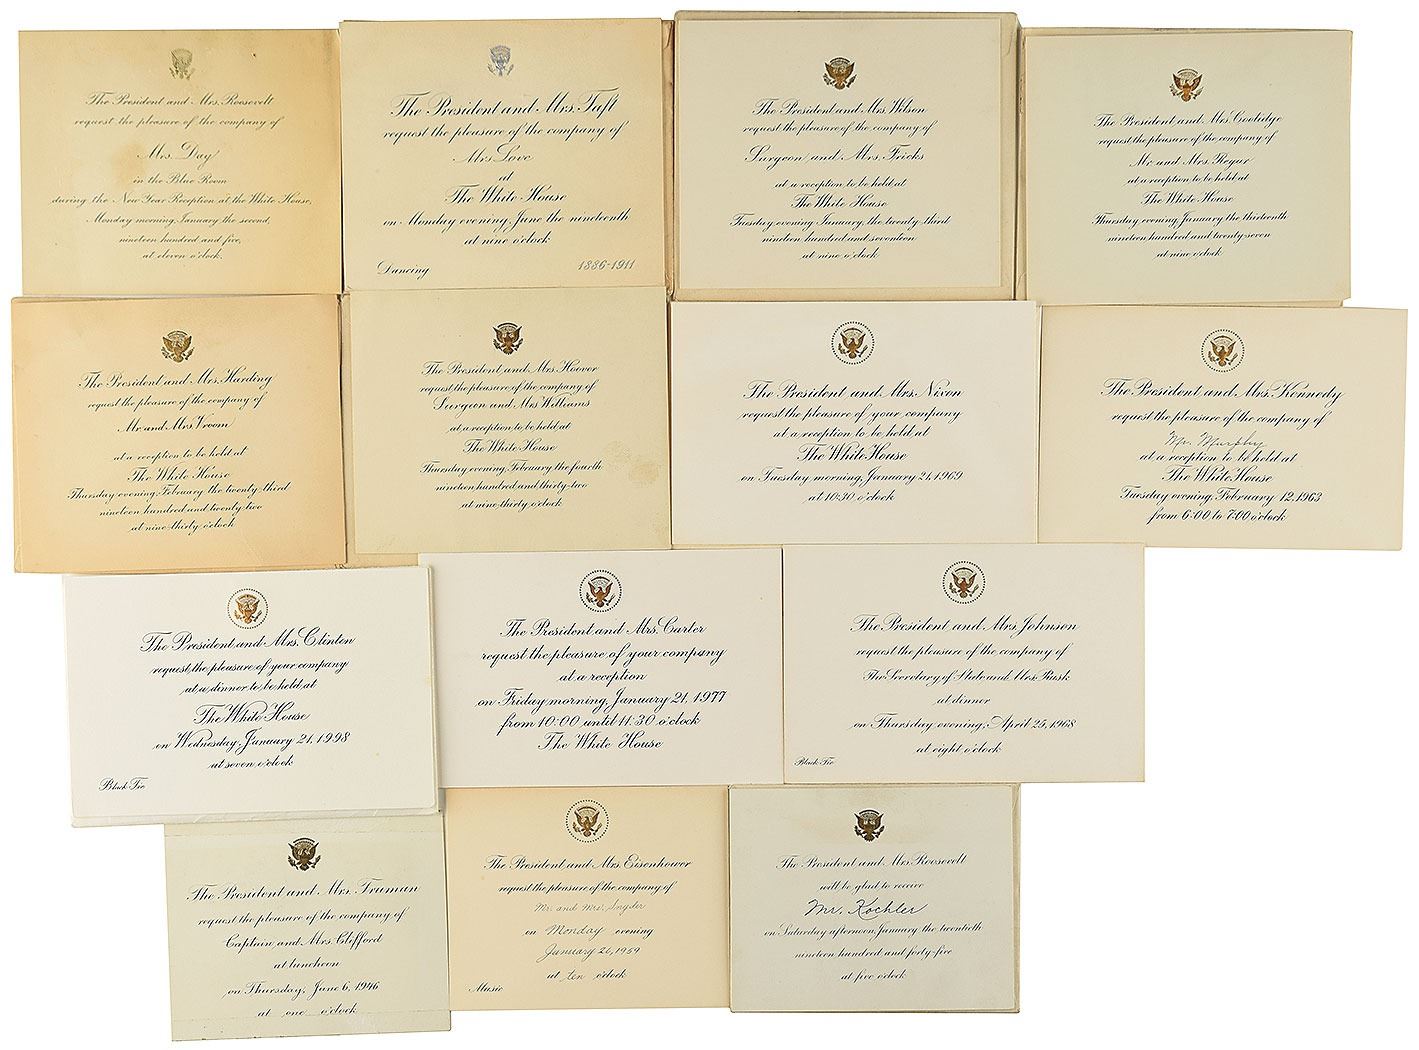 The President and Mrs. Roosevelt
request the pleasure of the company of
Mrs. Day
in the Blue Room
during the New Year Reception at the White House,
Monday morning, January the second,
nineteen hundred and five,
at eleven o'clock.
The President and Mrs. Taft
request the pleasure of the company of
Mrs. Love
at
The White House
on Monday evening, June the nineteenth
at nine o'clock
Dancing
1886-1911
The President and Mrs. Wilson
request the pleasure of the company of
Surgeon and Mrs. Fricks
at a reception to be held at
The White House
Tuesday evening January, the twenty-third
nineteen hundred and seventeen
at nine o'clock
The President and Mrs. Coolidge
request the pleasure of the company of
Mr. and Mrs.
at a reception to be held at
The White House
Thursday evening, January the thirteenth
nineteen hundred and twenty-seven
at nine o'clock
The President and Mrs. Harding
request the pleasure of the company of
Mr. and Mrs. Vroom
at a reception to be held at
The White House
Thursday evening, February the twenty-third
nineteen hundred and twenty-two
at nine-thirty o'clock
The President and Mrs. Hoover
request the pleasure of the company of
Surgeon and Mrs. Williams
at a reception to be held at
The White House
Thursday evening, February the fourth
nineteen hundred and thirty-two
at nine-thirty o'clock
The President and Mrs. Nixon
request the pleasure of your company
at a reception to be held at
The White House
on Tuesday morning, January 21, 1969
at 10:30 o'clock
The President and Mrs. Kennedy
request the pleasure of the company of
Mr. Murphy
at a reception to be held at
The White House
Tuesday evening, February 12, 1963
from 6:00 to 7:00 o'clock
The President and Mrs. Clinton
request the pleasure of your company
at a dinner to be held at
The White House
on Wednesday, January 21, 1998
at seven o'clock
Black Tie
The President and Mrs. Carter
request the pleasure of your company
at a reception
on Friday morning, January 21, 1977
from 10:00 until 11:30 o'clock
The White House
The President and Mrs. Johnson
request the pleasure of the company of
The Secretary of State and Mrs. Rusk
at dinner
on Thursday evening, April 25, 1968
at eight o'clock
Black Tie
The President and Mrs. Truman
request the pleasure of the company of
Captain and Mrs. Clifford
at luncheon
on Thursday, June 6, 1946
at one o'clock
The President and Mrs. Eisenhower
request the pleasure of the company of
Mr. and Mrs. Snyder
on Monday evening
January 26, 1959
at ten o'clock
Music
The President and Mrs. Roosevelt
will be glad to receive
Mr. Kochler
on Saturday afternoon, January the twentieth
nineteen hundred and forty-five
at five o'clock